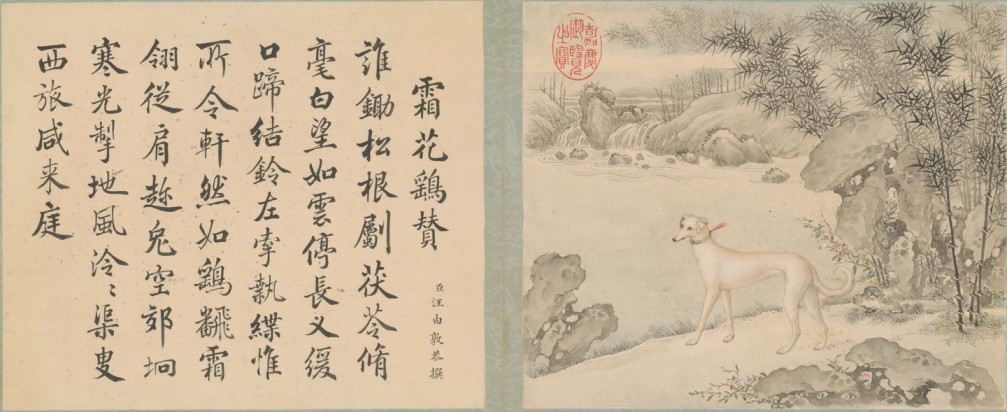 霜花鷂贊
臣汪由敦恭撰
誰鋤松根斸茯苓脩
毫白望如雲停長义緩
口蹄結鈴左牽執緤惟
所令軒然如鷂飜霜
翎從肩趂兔空郊坰
寒光掣地風泠〻渠叟
西旅咸来庭
嘉慶御覽之寶